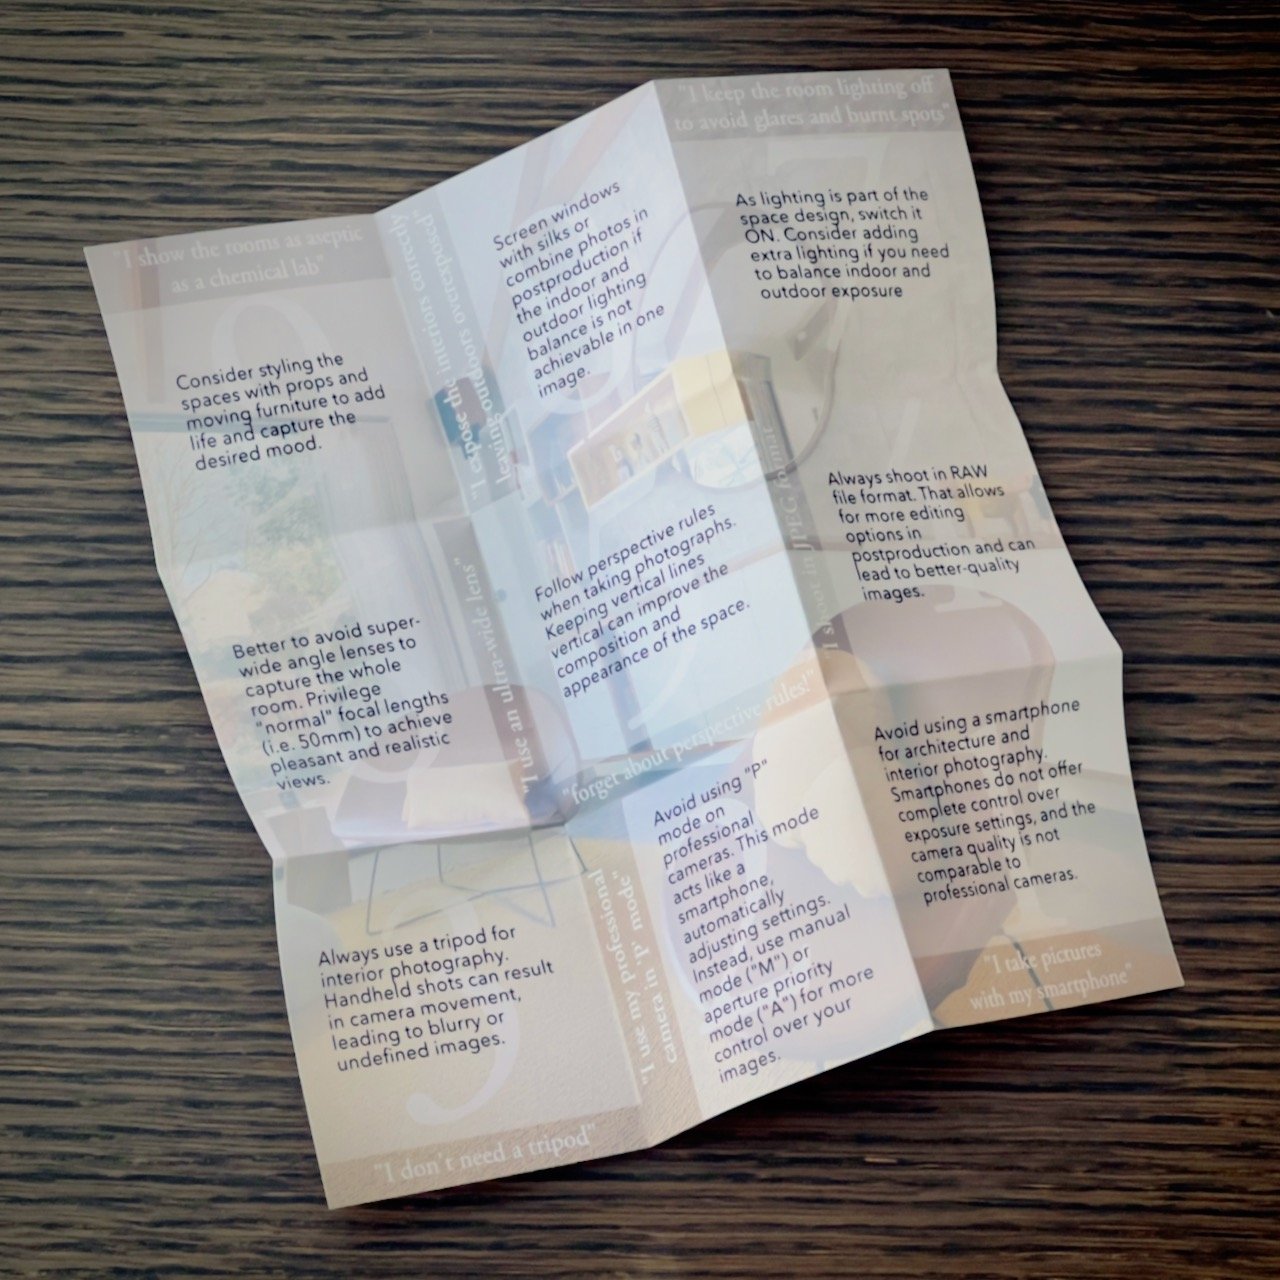 "I show the rooms as aseptic
as a chemical lab"
Consider styling the
spaces with props and
moving furniture to add
life and capture the
desired mood.
"I expose the interiors correctly
leaving outdoors overexposed"
Screen windows
with silks or
combine photos in
postproduction if
the indoor and
outdoor lighting
balance is not
achievable in one
image.
"I keep the room lighting off
to avoid glares and burnt spots"
As lighting is part of the
space design, switch it
ON. Consider adding
extra lighting if you need
to balance indoor and
outdoor exposure
Better to avoid super-
wide angle lenses to
capture the whole
room. Privilege
"normal" focal lengths
(i.e. 50mm) to achieve
pleasant and realistic
views.
"I use an ultra-wide lens"
Follow perspective rules
when taking photographs.
Keeping vertical lines
vertical can improve the
composition and
appearance of the space.
"forget about perspective rules!"
"I shoot in JPEG format"
Always shoot in RAW
file format. That allows
for more editing
options in
postproduction and can
lead to better-quality
images.
Always use a tripod for
interior photography.
Handheld shots can result
in camera movement,
leading to blurry or
undefined images.
"I don't need a tripod"
"I use my professional
camera in "P" mode"
Avoid using "P"
mode on
professional
cameras. This mode
acts like a
smartphone,
automatically
adjusting settings.
Instead, use manual
mode ("M") or
aperture priority
mode ("A") for more
control over your
images.
Avoid using a smartphone
for architecture and
interior photography.
Smartphones do not offer
complete control over
exposure settings, and the
camera quality is not
comparable to
professional cameras.
"I take pictures
with my smartphone"